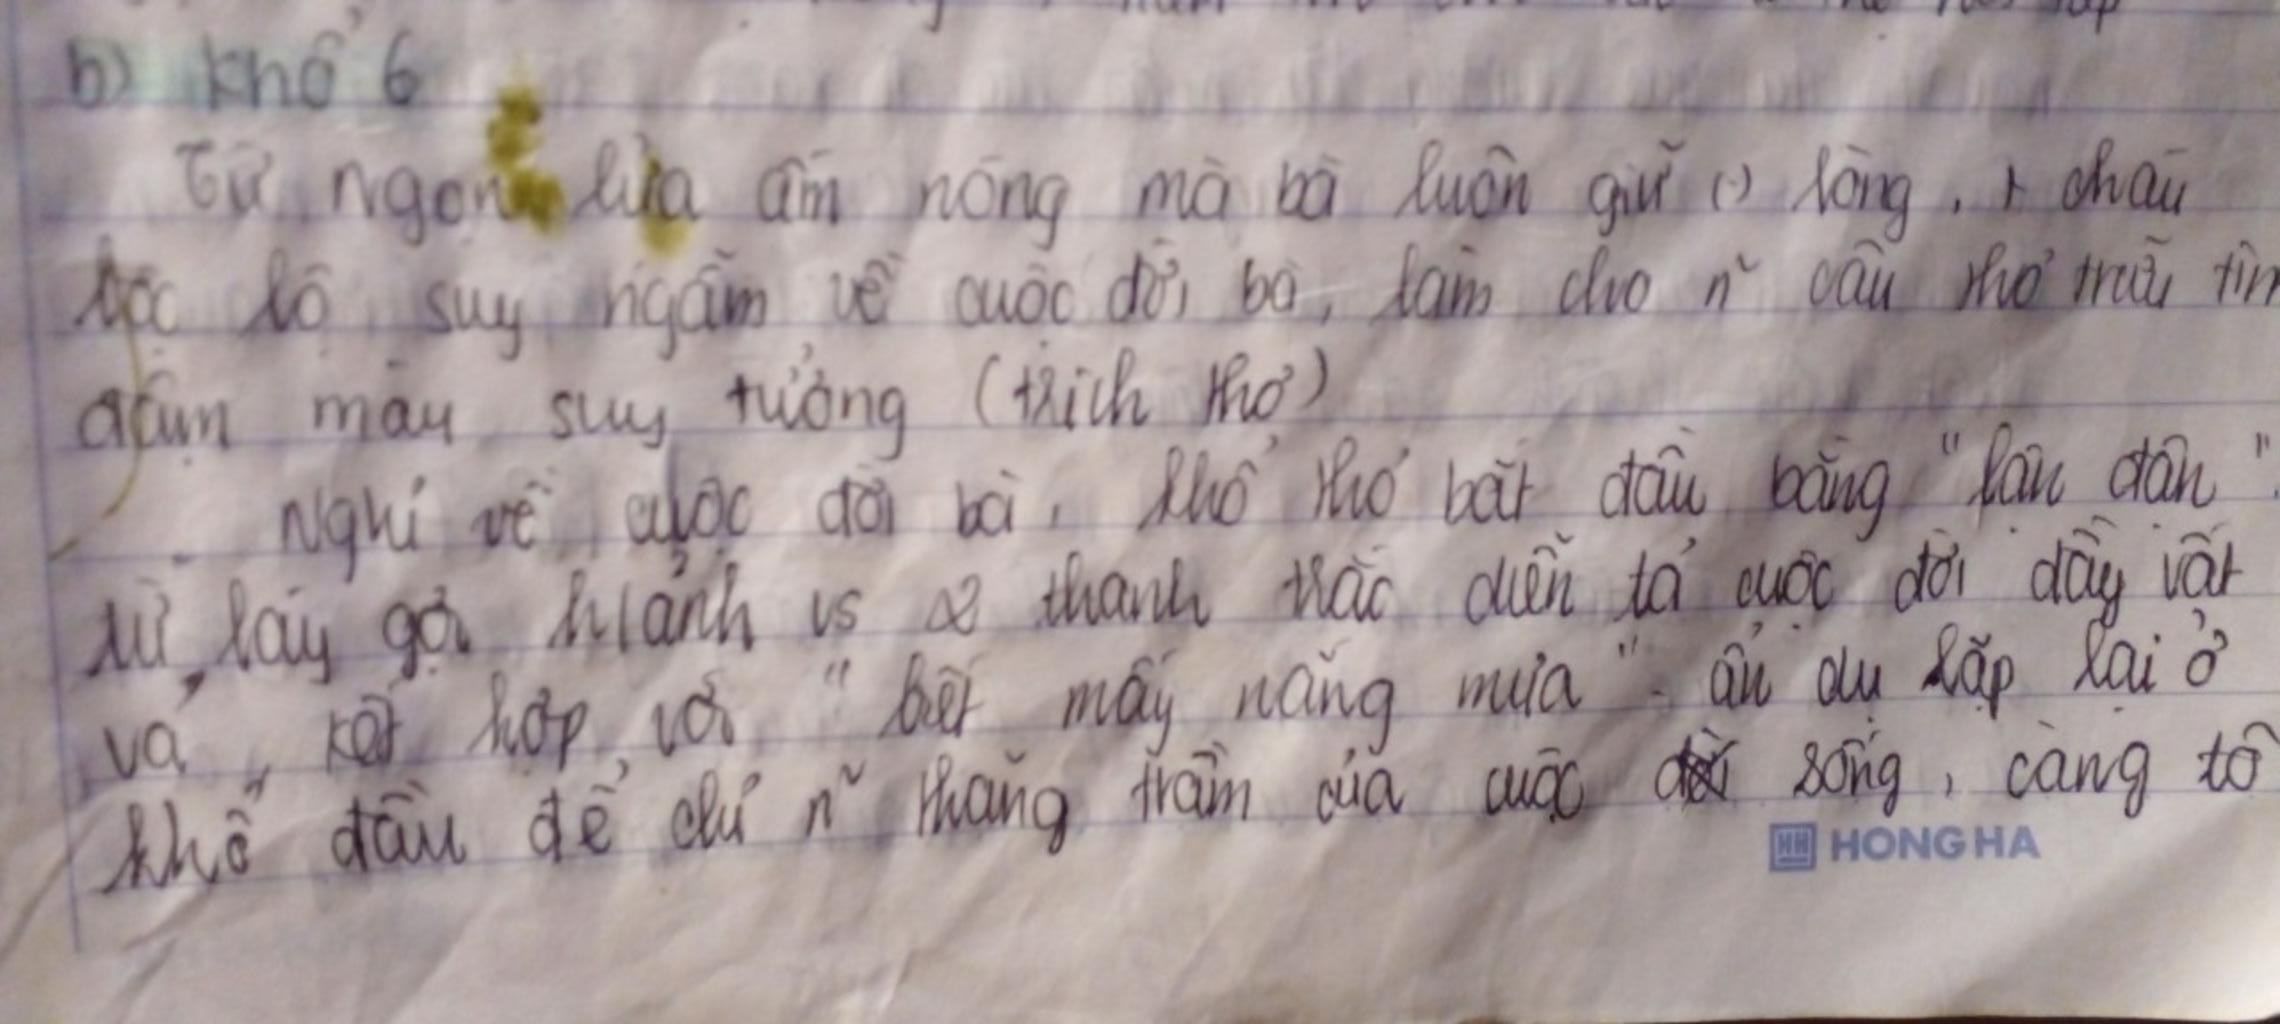 b) Khổ 6
Từ ngọn lửa ấm nóng mà bà luôn giữ (-) lòng, + cháu
bộc lộ suy ngẫm về cuộc đời bà, làm cho n~ câu thơ trữ tìn
đậm màu suy tưởng (trích thơ)
Nghĩ về cuộc đời bà, khổ thơ bắt đầu bằng "lận đận"
từ láy gợi h/ảnh vs 2 thanh trắc diễn tả cuộc đời đầy vất
vả, kết hợp với "biết mấy nắng mưa" - ẩn dụ lặp lại ở
khổ đầu để chỉ n~ thăng trầm của cuộc sống, càng tô
HONG HA